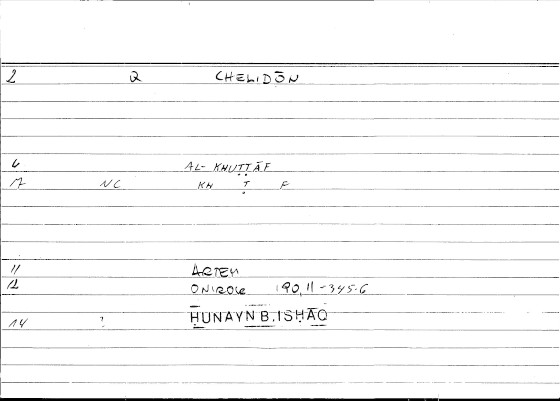 2 Q CHELIDŌN
6 AL- KHUṬṬĀF
17 NC KH Ṭ F
11 ARTEM
12 ONIROCR 190,11-345.6
14 ? ḤUNAYN B. ISḤĀQ